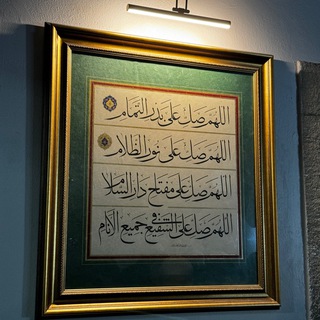 اللهم صل على بدر التمام
اللهم صل على نور الظلام
اللهم صل على مفتاح دار السلام
اللهم صل على الشفيع في جميع الأنام